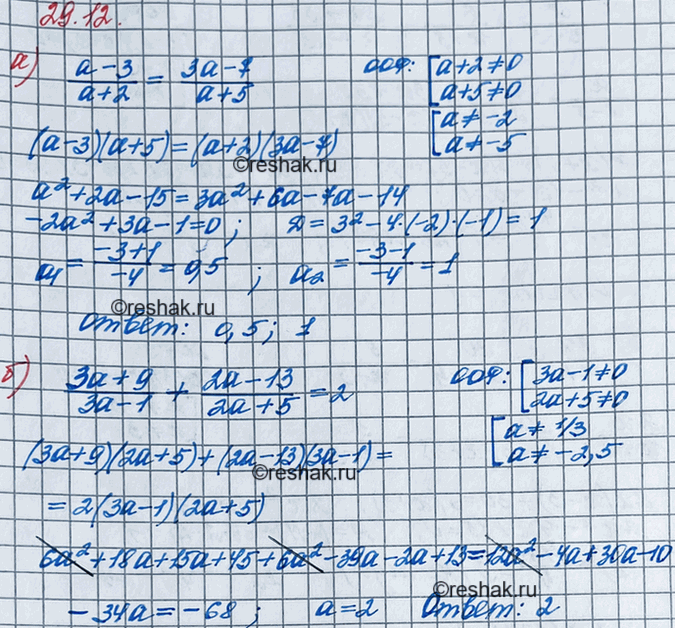 29.12.
а) (a-3)/(a+2) = (3a-7)/(a+5) ООФ: [a+2≠0
[a+5≠0
(a-3)(a+5)=(a+2)(3a-7) [a≠-2
[a≠-5
©reshak.ru
a²+2a-15=3a²+6a-7a-14
-2a²+3a-1=0; D=3²-4·(-2)·(-1)=1
a₁=(-3+1)/(-4)=0,5; a₂=(-3-1)/(-4)=1
©reshak.ru
Ответ: 0,5; 1
б) (3a+9)/(3a-1) + (2a-13)/(2a+5) = 2 ООФ: [3a-1≠0
[2a+5≠0
[a≠1/3
[a≠-2,5
(3a+9)(2a+5)+(2a-13)(3a-1)=
©reshak.ru
=2(3a-1)(2a+5)
6a²+18a+15a+45+6a²-39a-2a+13=12a²-4a+30a-10
©reshak.ru
-34a=-68; a=2 Ответ: 2